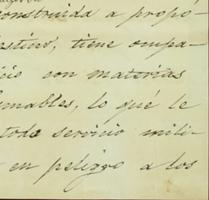 construida a propó
estino, tiene ocupa-
cio con materias
amables, lo qué le
todo servicio mili-
en peligro a los